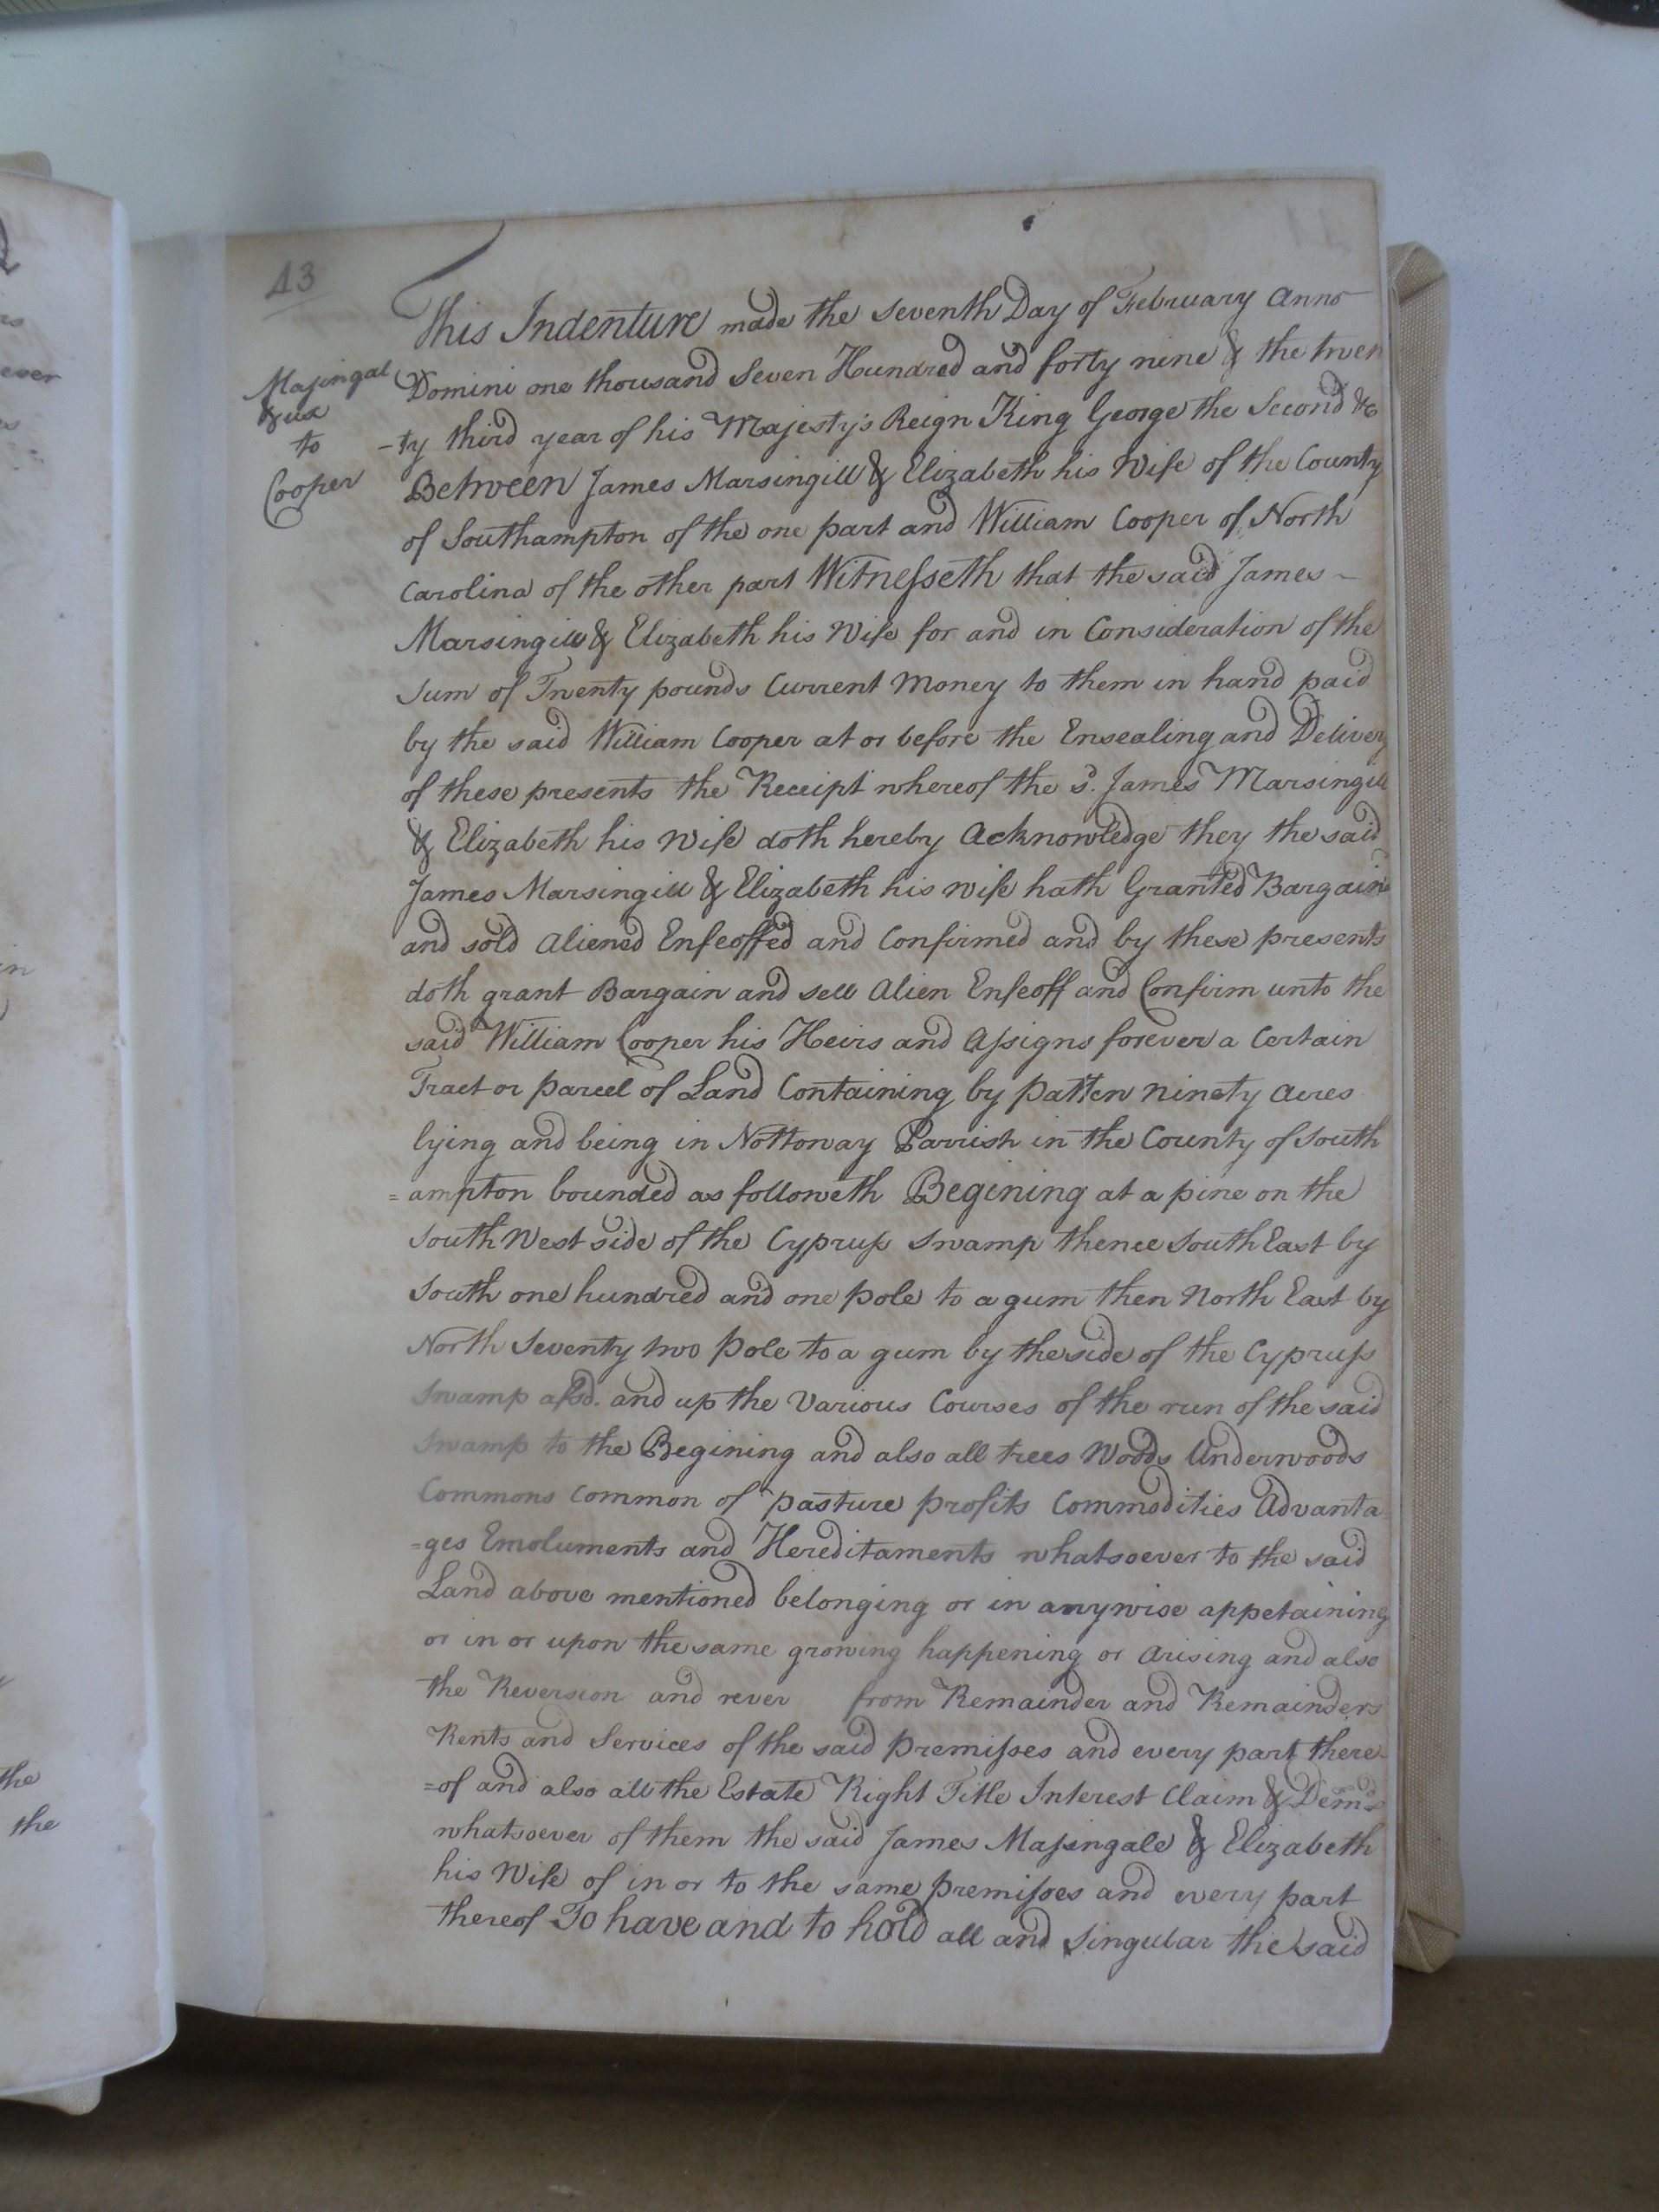 43
Massingal
& ux
to
Cooper
This Indenture made the Seventh Day of February Anno
Domini one thousand Seven Hundred and forty nine & the twen
-ty third year of his Majesty's Reign King George the Second &c
Between James Marsingill & Elizabeth his Wife of the County
of Southampton of the one part and William Cooper of North
Carolina of the other part Witnesseth that the said James
Marsingill & Elizabeth his Wife for and in Consideration of the
Sum of Twenty pounds Current Money to them in hand paid
by the said William Cooper at or before the Ensealing and Delivery
of these presents the Receipt whereof the sd. James Marsingill
& Elizabeth his Wife doth hereby Acknowledge they the said
James Marsingill & Elizabeth his wife hath Granted Bargain
and sold Aliened Enfeoffed and Confirmed and by these presents
doth grant Bargain and sell Alien Enfeoff and Confirm unto the
said William Cooper his Heirs and Assigns forever a Certain
Tract or parcel of Land Containing by patten ninety Acres
lying and being in Nottoway Parrish in the County of South
=ampton bounded as followeth Begining at a pine on the
South West side of the Cypruss Swamp thence South East by
South one hundred and one pole to a gum then North East by
North Seventy two pole to a gum by the side of the Cypruss
Swamp afsd. and up the Various Courses of the run of the said
Swamp to the Begining and also all trees Woods Underwoods
Commons Common of pasture profits Commodities Advanta
=ges Emoluments and Hereditaments whatsoever to the said
Land above mentioned belonging or in anywise appetaining
or in or upon the same growing happening or Arising and also
the Reversion and rever from Remainder and Remainders
Rents and Services of the said premisses and every part there
=of and also all the Estate Right Title Interest Claim & Demd
whatsoever of them the said James Massingale & Elizabeth
his Wife of in or to the same premisses and every part
thereof To have and to hold all and Singular the said
ever
in
the
the